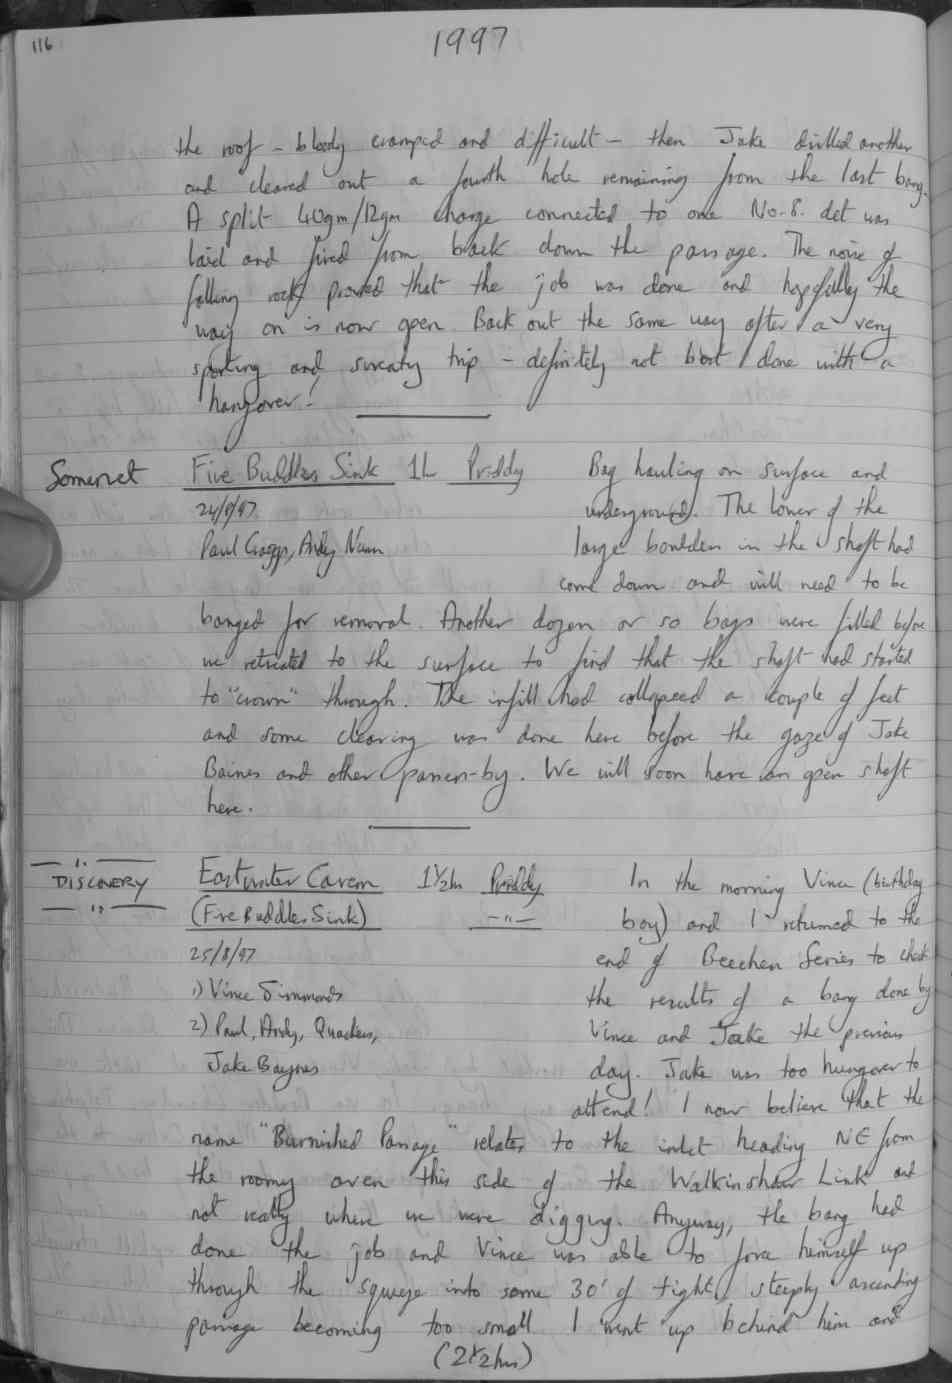 116
1997
the roof - bloody cramped and difficult - then Jake drilled another
and cleared out a fourth hole remaining from the last bang.
A split 40gm/12gm charge connected to one No. 8. det was
laid and fired from back down the passage. The noise of
falling rock proved that the job was done and hopefully the
way on is now open. Back out the same way after a very
sporting and sweaty trip - definitely not best done with a
hangover!
Somerset Five Buddles Sink 1h Priddy Bag hauling on surface and
24/8/97 underground. The lower of the
Paul Craggs, Andy Nunn large boulders in the shaft had
come down and will need to be
banged for removal. Another dozen or so bags were filled before
we retreated to the surface to find that the shaft had started
to "crown" through. The infill had collapsed a couple of feet
and some clearing was done here before the gaze of Jake
Baines and other passers-by. We will soon have an open shaft
here.
DISCOVERY Eastwater Cavern 1½hs Priddy In the morning Vince (birthday
(Five Buddles Sink) -"- boy) and I returned to the
25/8/97 end of Beechen Series to check
1) Vince Simmonds the results of a bang done by
2) Paul, Andy, Quackers, Vince and Jake the previous
Jake Baynes day. Jake was too hungover to
attend! I now believe that the
name "Burnished Passage" relates to the inlet heading NE from
the roomy aven this side of the Walkinshaw Link and
not really where we were digging. Anyway, the bang had
done the job and Vince was able to force himself up
through the squeeze into some 30' of tight, steeply ascending
passage becoming too small. I went up behind him and
(2½hs)